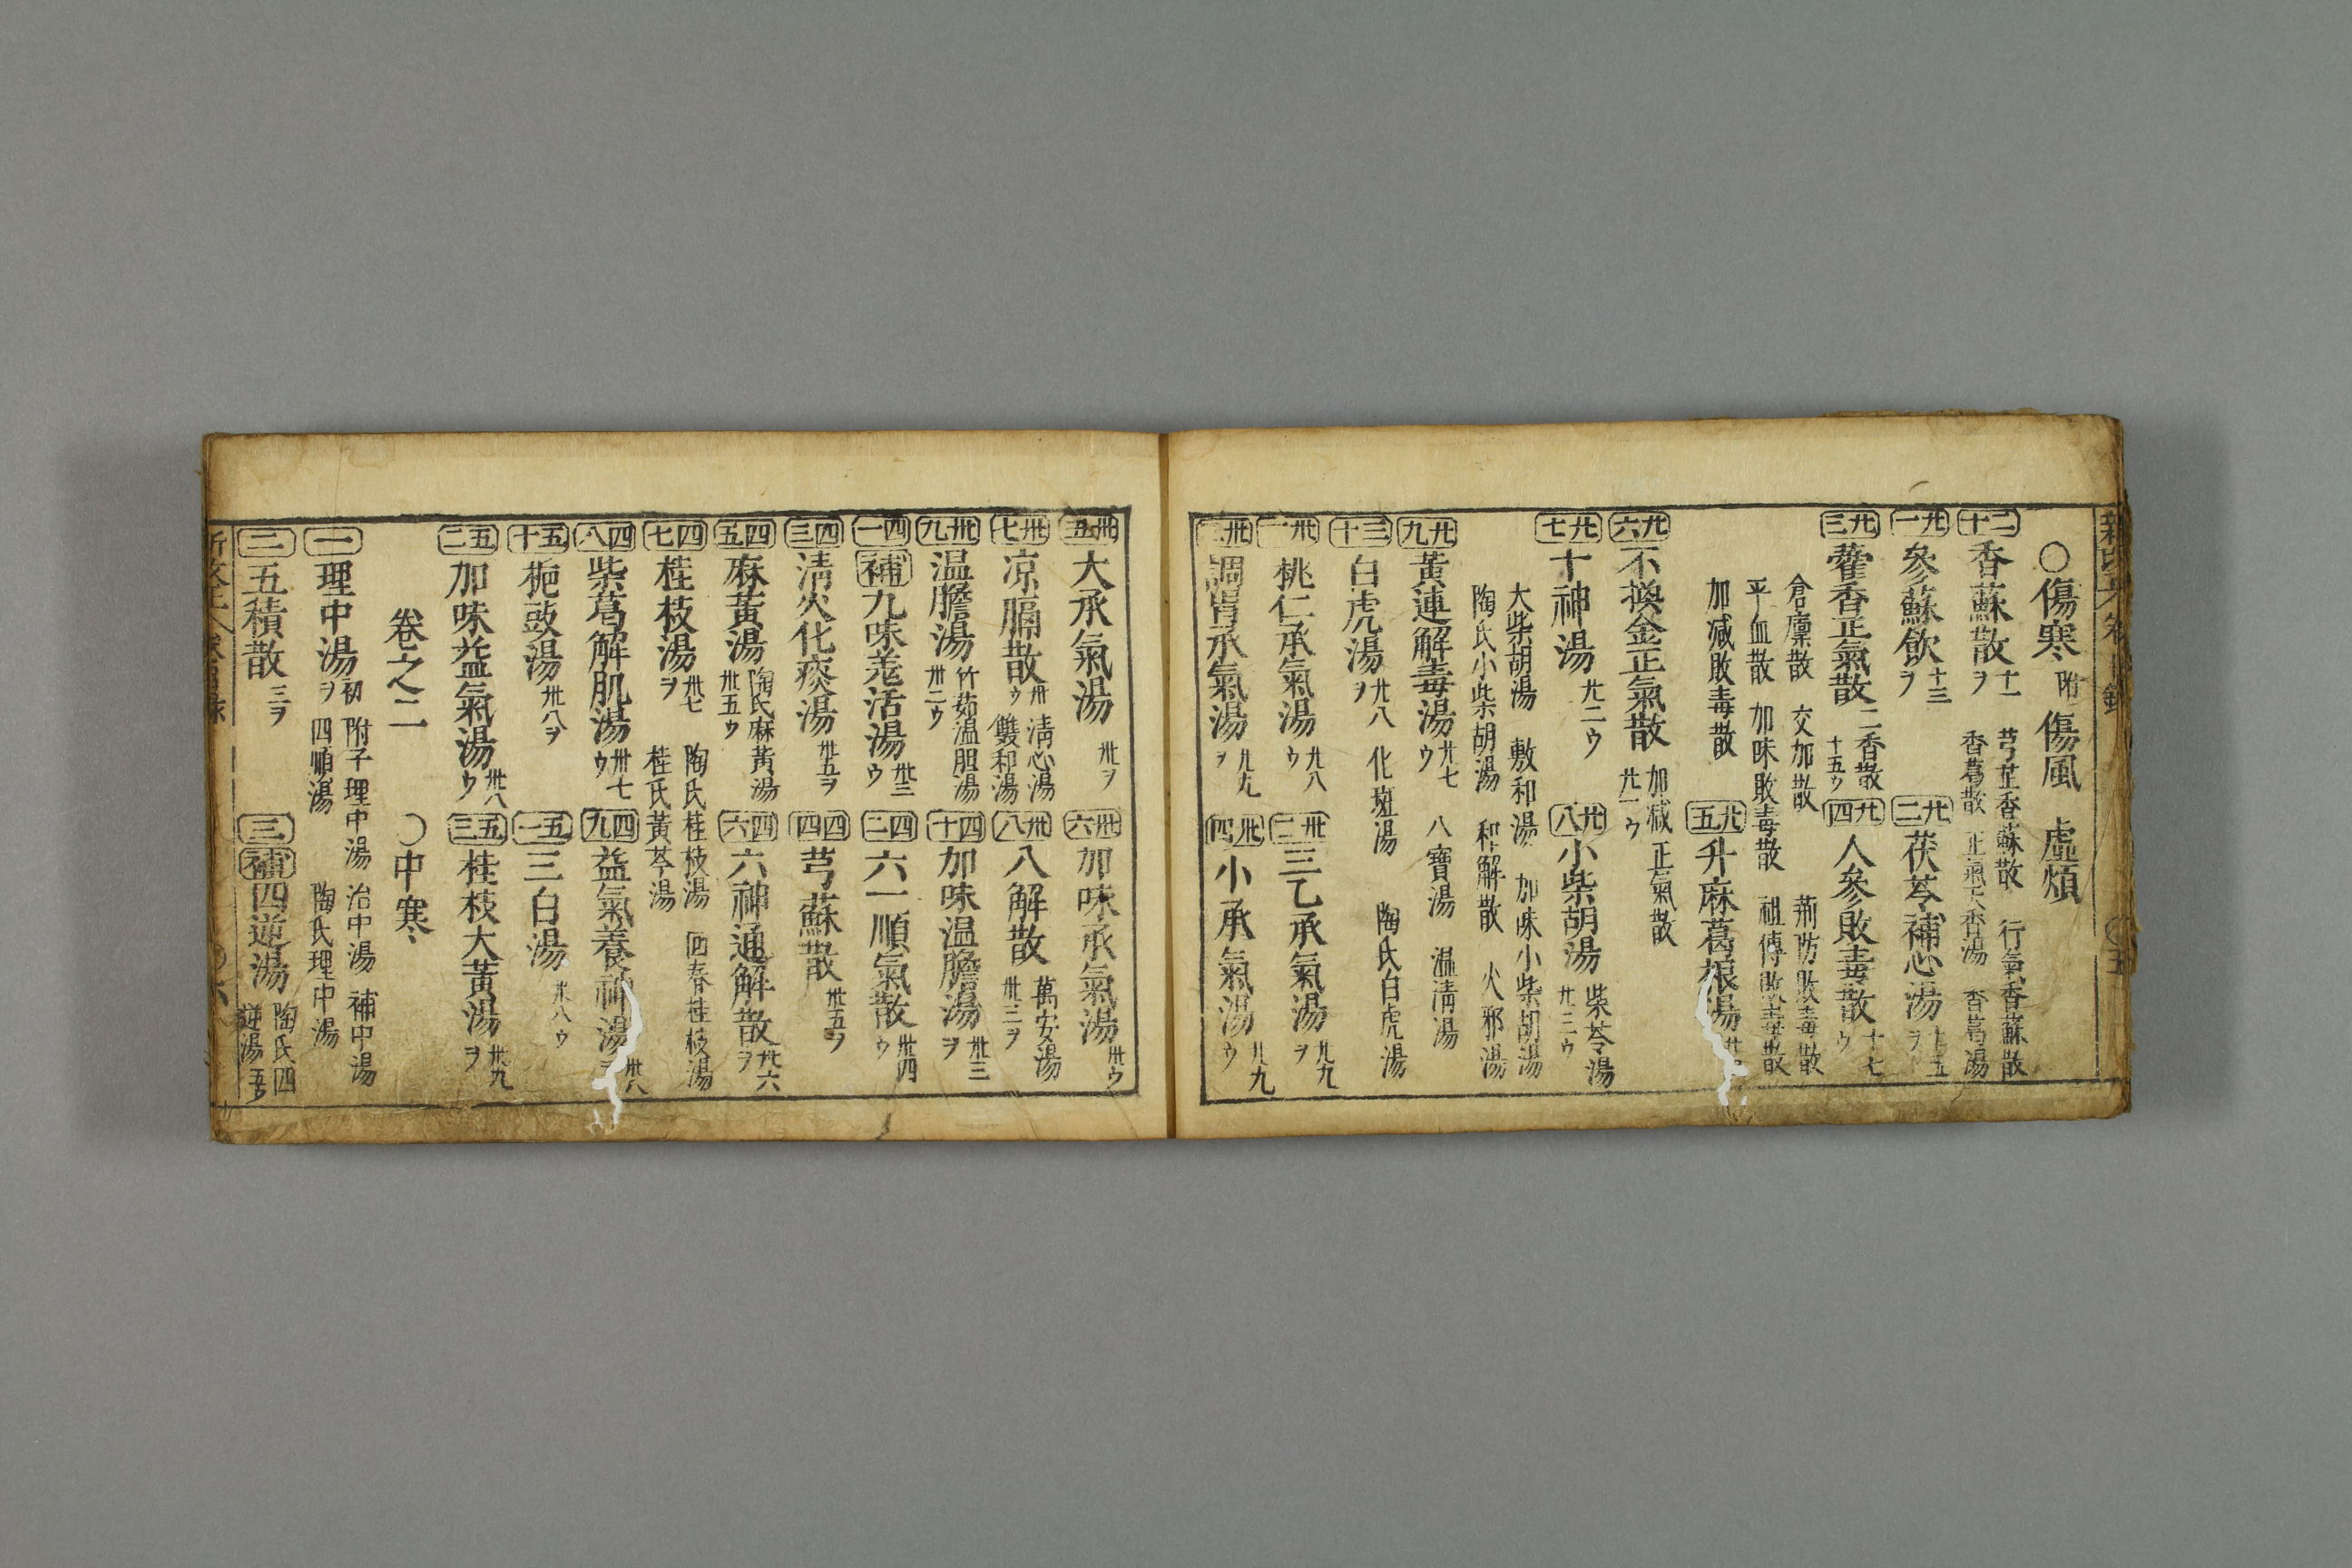 ○傷寒 附 傷風 虛煩
二十 香蘇散 十一ヲ 芎芷香蘇散 行氣香蘇散
香葛散 正氣天香湯 香葛湯
廿一 參蘇飲 十三ヲ 廿二 茯苓補心湯 十五ヲ
廿三 藿香正氣散 二香散 十五ウ 廿四 人參敗毒散 十七ウ
倉廩散 交加散 荊防敗毒散
平血散 加味敗毒散 祖傳敗毒散
加減敗毒散 廿五 升麻葛根湯
廿六 不換金正氣散 加減正氣散 廿一ウ
廿七 十神湯 廿二ウ 廿八 小柴胡湯 柴苓湯 廿三ウ
大柴胡湯 敷和湯 加味小柴胡湯
陶氏小柴胡湯 和解散 火邪湯
廿九 黃連解毒湯 廿七ウ 八寶湯 温清湯
三十 白虎湯 廿八ヲ 化斑湯 陶氏白虎湯
卅一 桃仁承氣湯 廿八ウ 卅二 三乙承氣湯 廿九ヲ
卅三 調胃承氣湯 廿九ヲ 卅四 小承氣湯 廿九ウ
卅五 大承氣湯 卅ヲ 卅六 加味承氣湯 卅ウ
卅七 凉膈散 卅ウ 清心湯 雙和湯 卅八 八解散 萬安湯 卅三ヲ
卅九 温膽湯 竹茹温胆湯 卅二ウ 四十 加味温膽湯 卅三ヲ
四一 補 九味羌活湯 卅三ウ 四二 六一順氣散 卅四ウ
四三 淸火化痰湯 卅五ヲ 四四 芎蘇散 卅五ヲ
四五 麻黃湯 陶氏麻黃湯 卅五ウ 四六 六神通解散 卅六ヲ
四七 桂枝湯 卅七ヲ 陶氏桂枝湯 回春桂枝湯
桂氏黃芩湯
四八 柴葛解肌湯 卅七ウ 四九 益氣養神湯 卅八
五十 梔豉湯 卅八ヲ 五一 三白湯 卅八ウ
五二 加味益氣湯 卅八ウ 五三 桂枝大黃湯 卅九ヲ
卷之二 ○中寒
一 理中湯 初ヲ 附子理中湯 治中湯 補中湯
四順湯 陶氏理中湯
二 五積散 三ヲ 三 補 四逆湯 陶氏四逆湯 五ウ